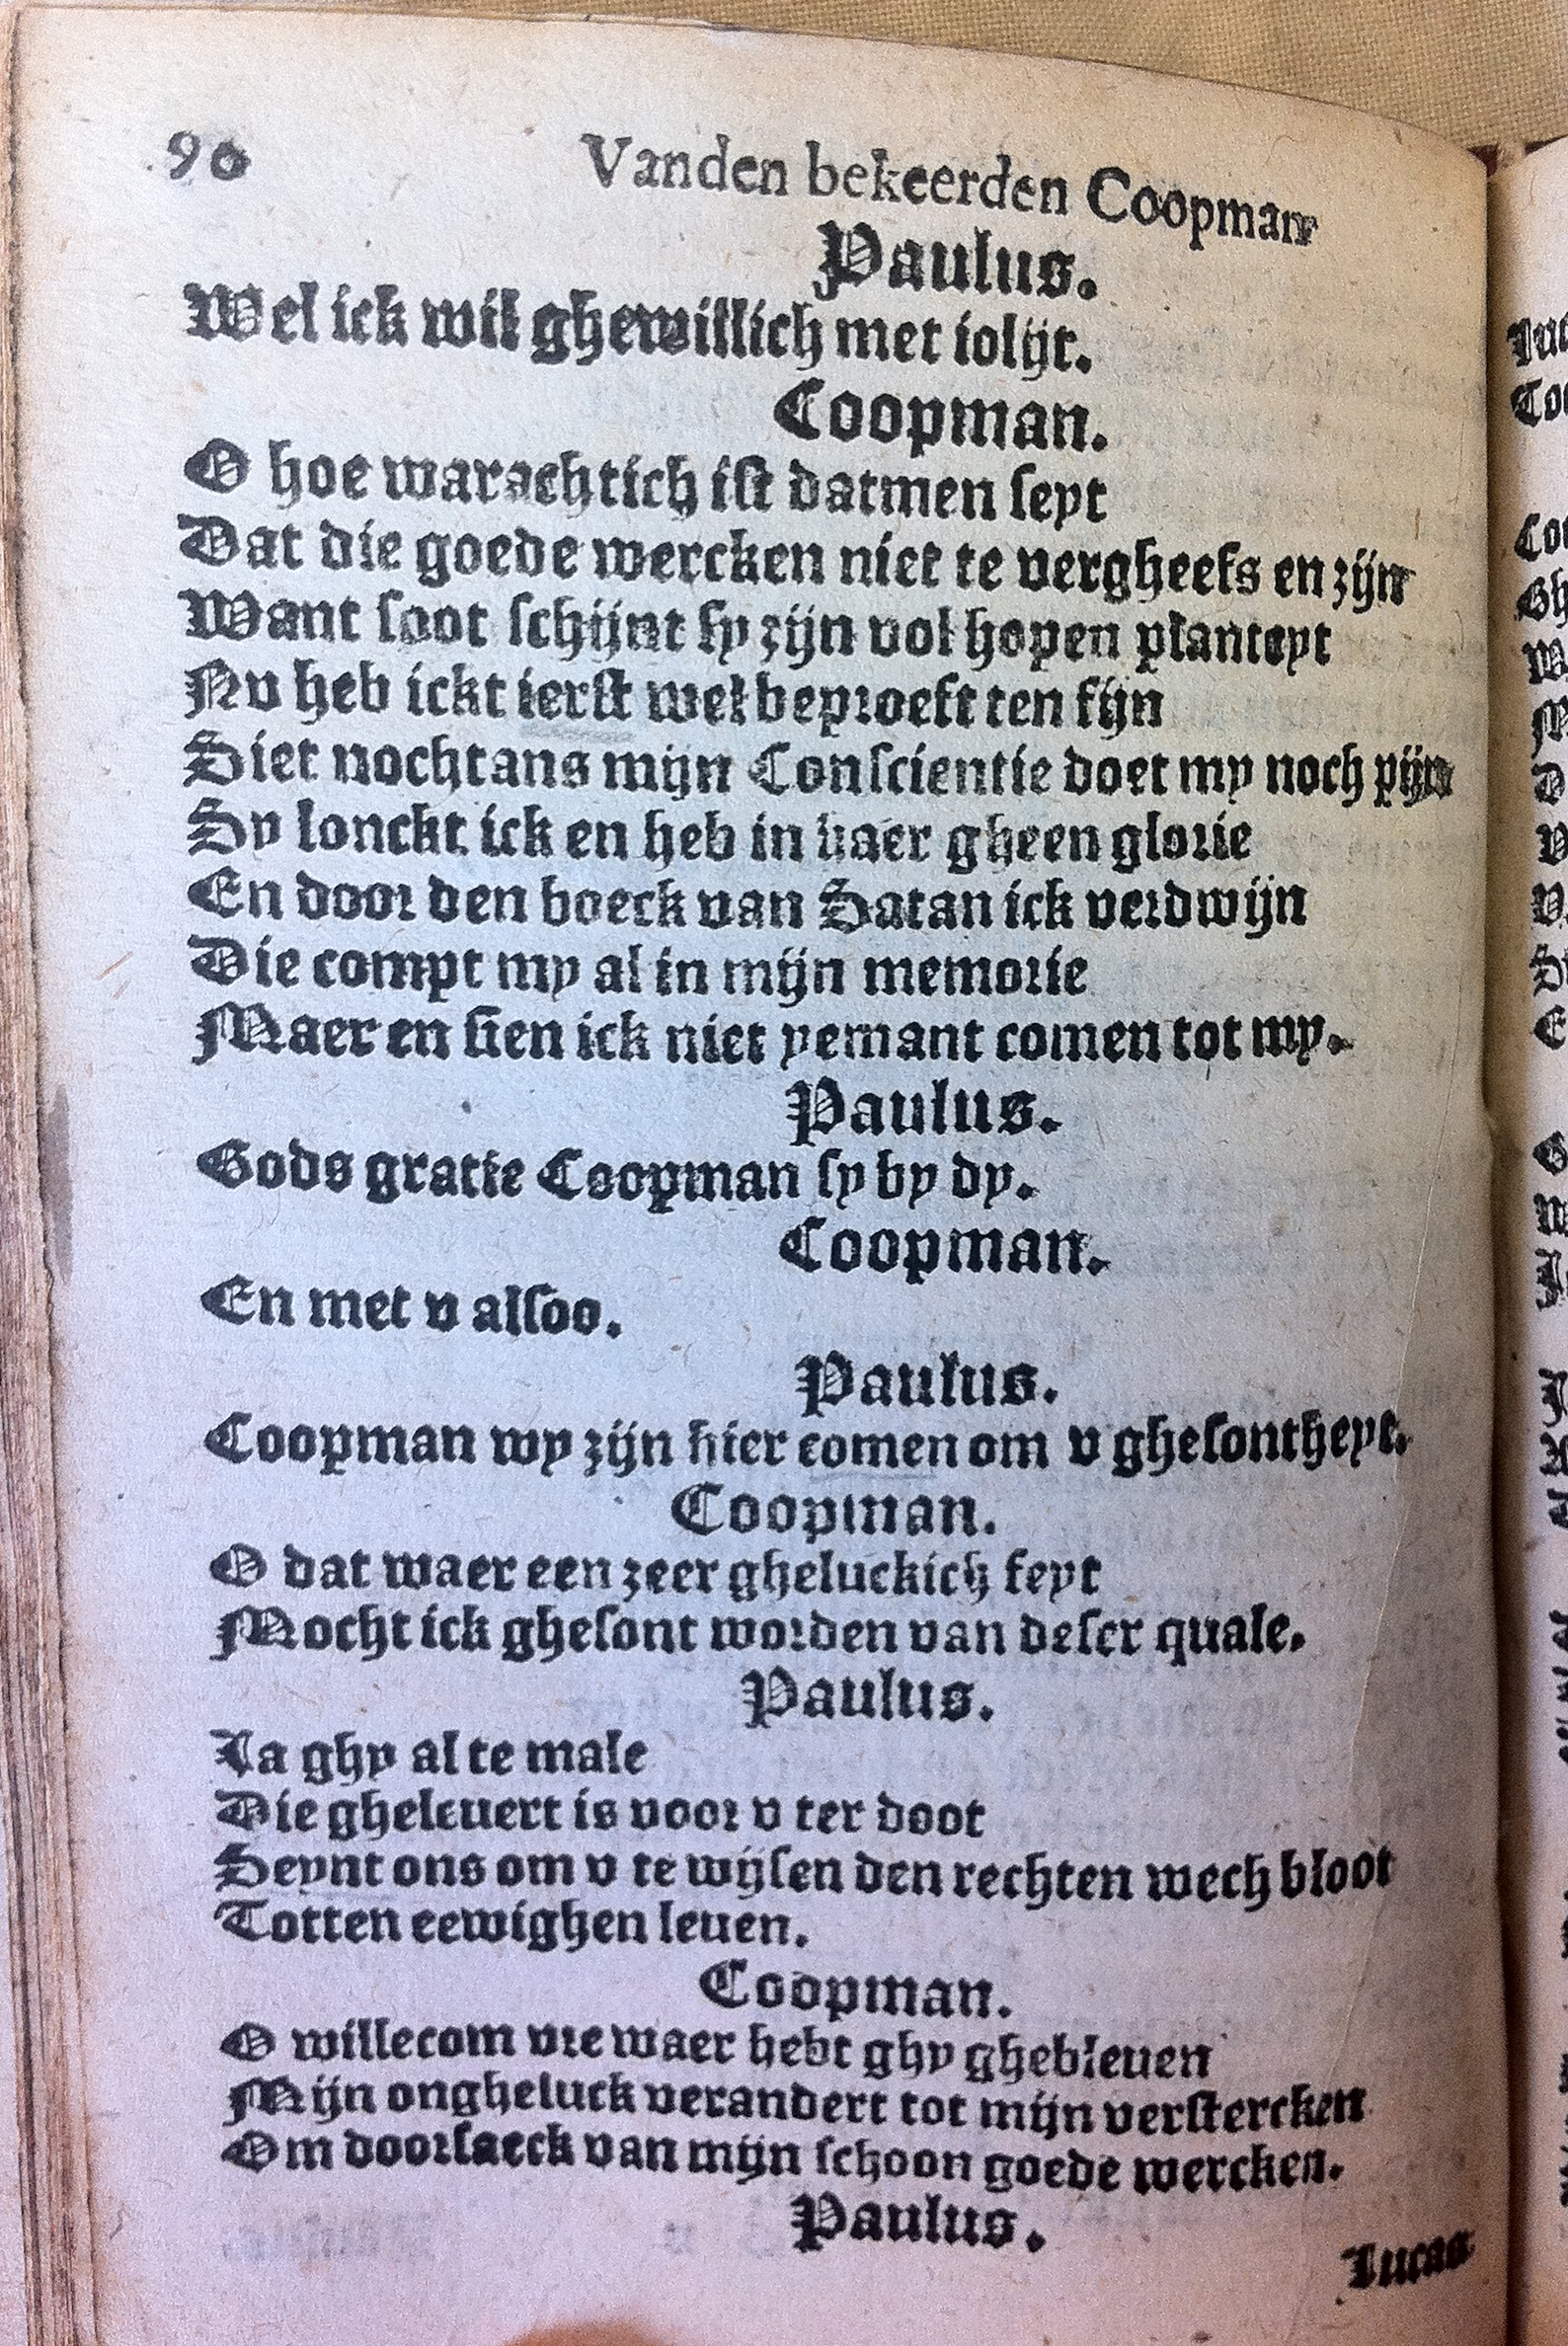 90 Vanden bekeerden Coopman
Paulus.
Wel ick wil ghewillich met iolijt.
Coopman.
O hoe warachtich ist datmen seyt
Dat die goede wercken niet te vergheefs en zijn
Want soot schijnt sy zijn vol hopen planteyt
Nv heb ickt ierst wel beproeft ten fijn
Siet nochtans mijn Conscientie doet my noch pijn
Sy lonckt ick en heb in haer gheen glorie
En door den boeck van Satan ick verdwijn
Die compt my al in mijn memorie
Maer en sien ick niet yemant comen tot my.
Paulus.
Gods gratie Coopman sy by dy.
Coopman.
En met v alsoo.
Paulus.
Coopman wy zijn hier comen om v ghesontheyt.
Coopman.
O dat waer een zeer gheluckich feyt
Mocht ick ghesont worden van deser quale.
Paulus.
Ia ghy al te male
Die gheleuert is voor v ter doot
Seynt ons om v te wijsen den rechten wech bloot
Totten eewighen leuen.
Coopman.
O willecom vre waer hebt ghy ghebleuen
Mijn ongheluck verandert tot mijn verstercken
Om doorsaeck van mijn schoon goede wercken.
Paulus.
Lucas